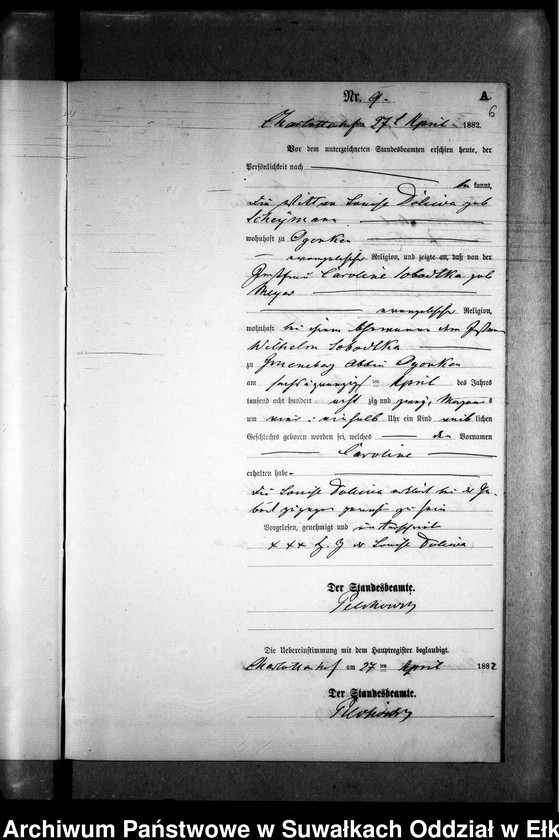 Nr. 9.
A.
6
Charlottenhof 27t April 1882.
Vor dem unterzeichneten Standesbeamten erschien heute, der
Persönlichkeit nach
be kannt,
die Louise Dolewa geb
wohnhaft zu Ogonken
evangelischer Religion, und zeigte an, daß von der
Caroline Sobodtka geb
Meyer
evangelischer Religion,
wohnhaft bei ihrem Ehemanne dem
Wilhelm Sobodtka
zu Abbau Ogonken
am sechsundzwanzigsten April des Jahres
tausend acht hundert acht zig und zwei, Morgens
um ein halb Uhr ein Kind weib lichen
Geschlechts geboren worden sei, welches den Vornamen
Caroline
erhalten habe.
die Louise Dolewa erklärt bei der Ge-
burt zugegen gewesen zu sein
Vorgelesen, genehmigt und
+++ Louise Dolewa
Der Standesbeamte.
Die Uebereinstimmung mit dem Hauptregister beglaubigt.
Charlottenhof am 27 ten April 1882
Der Standesbeamte.
Archiwum Państwowe w Suwałkach Oddział w Ełk